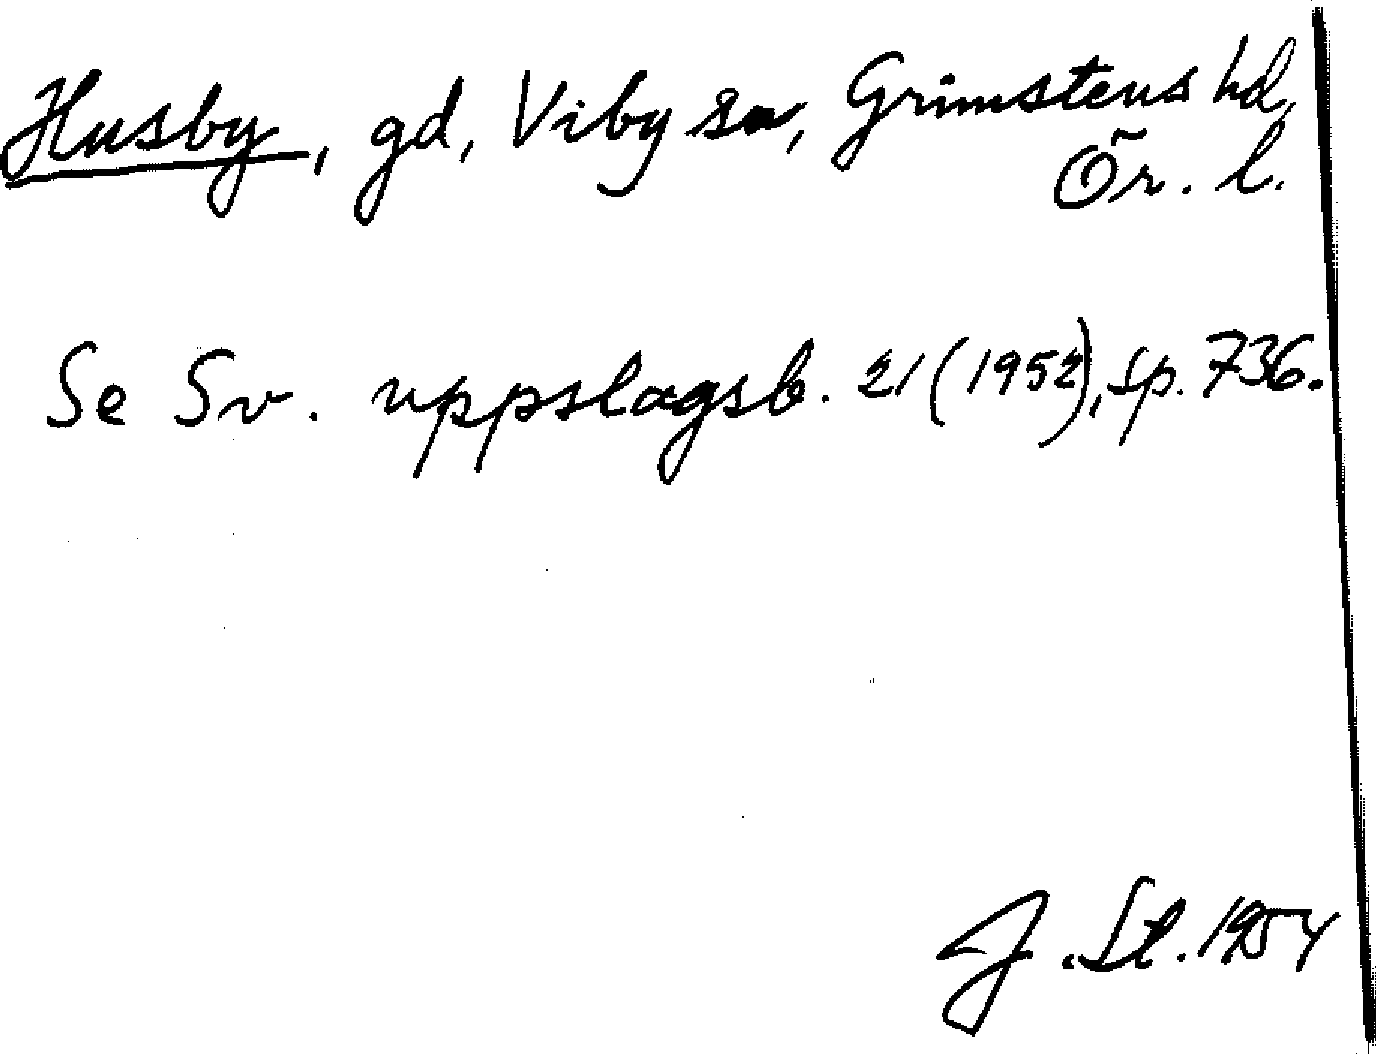 Husby, gd, Viby sn, Grimstens hd,
Ör. l.
Se Sv. uppslagsb. 21 (1952), sp. 736.
J. St. 1954